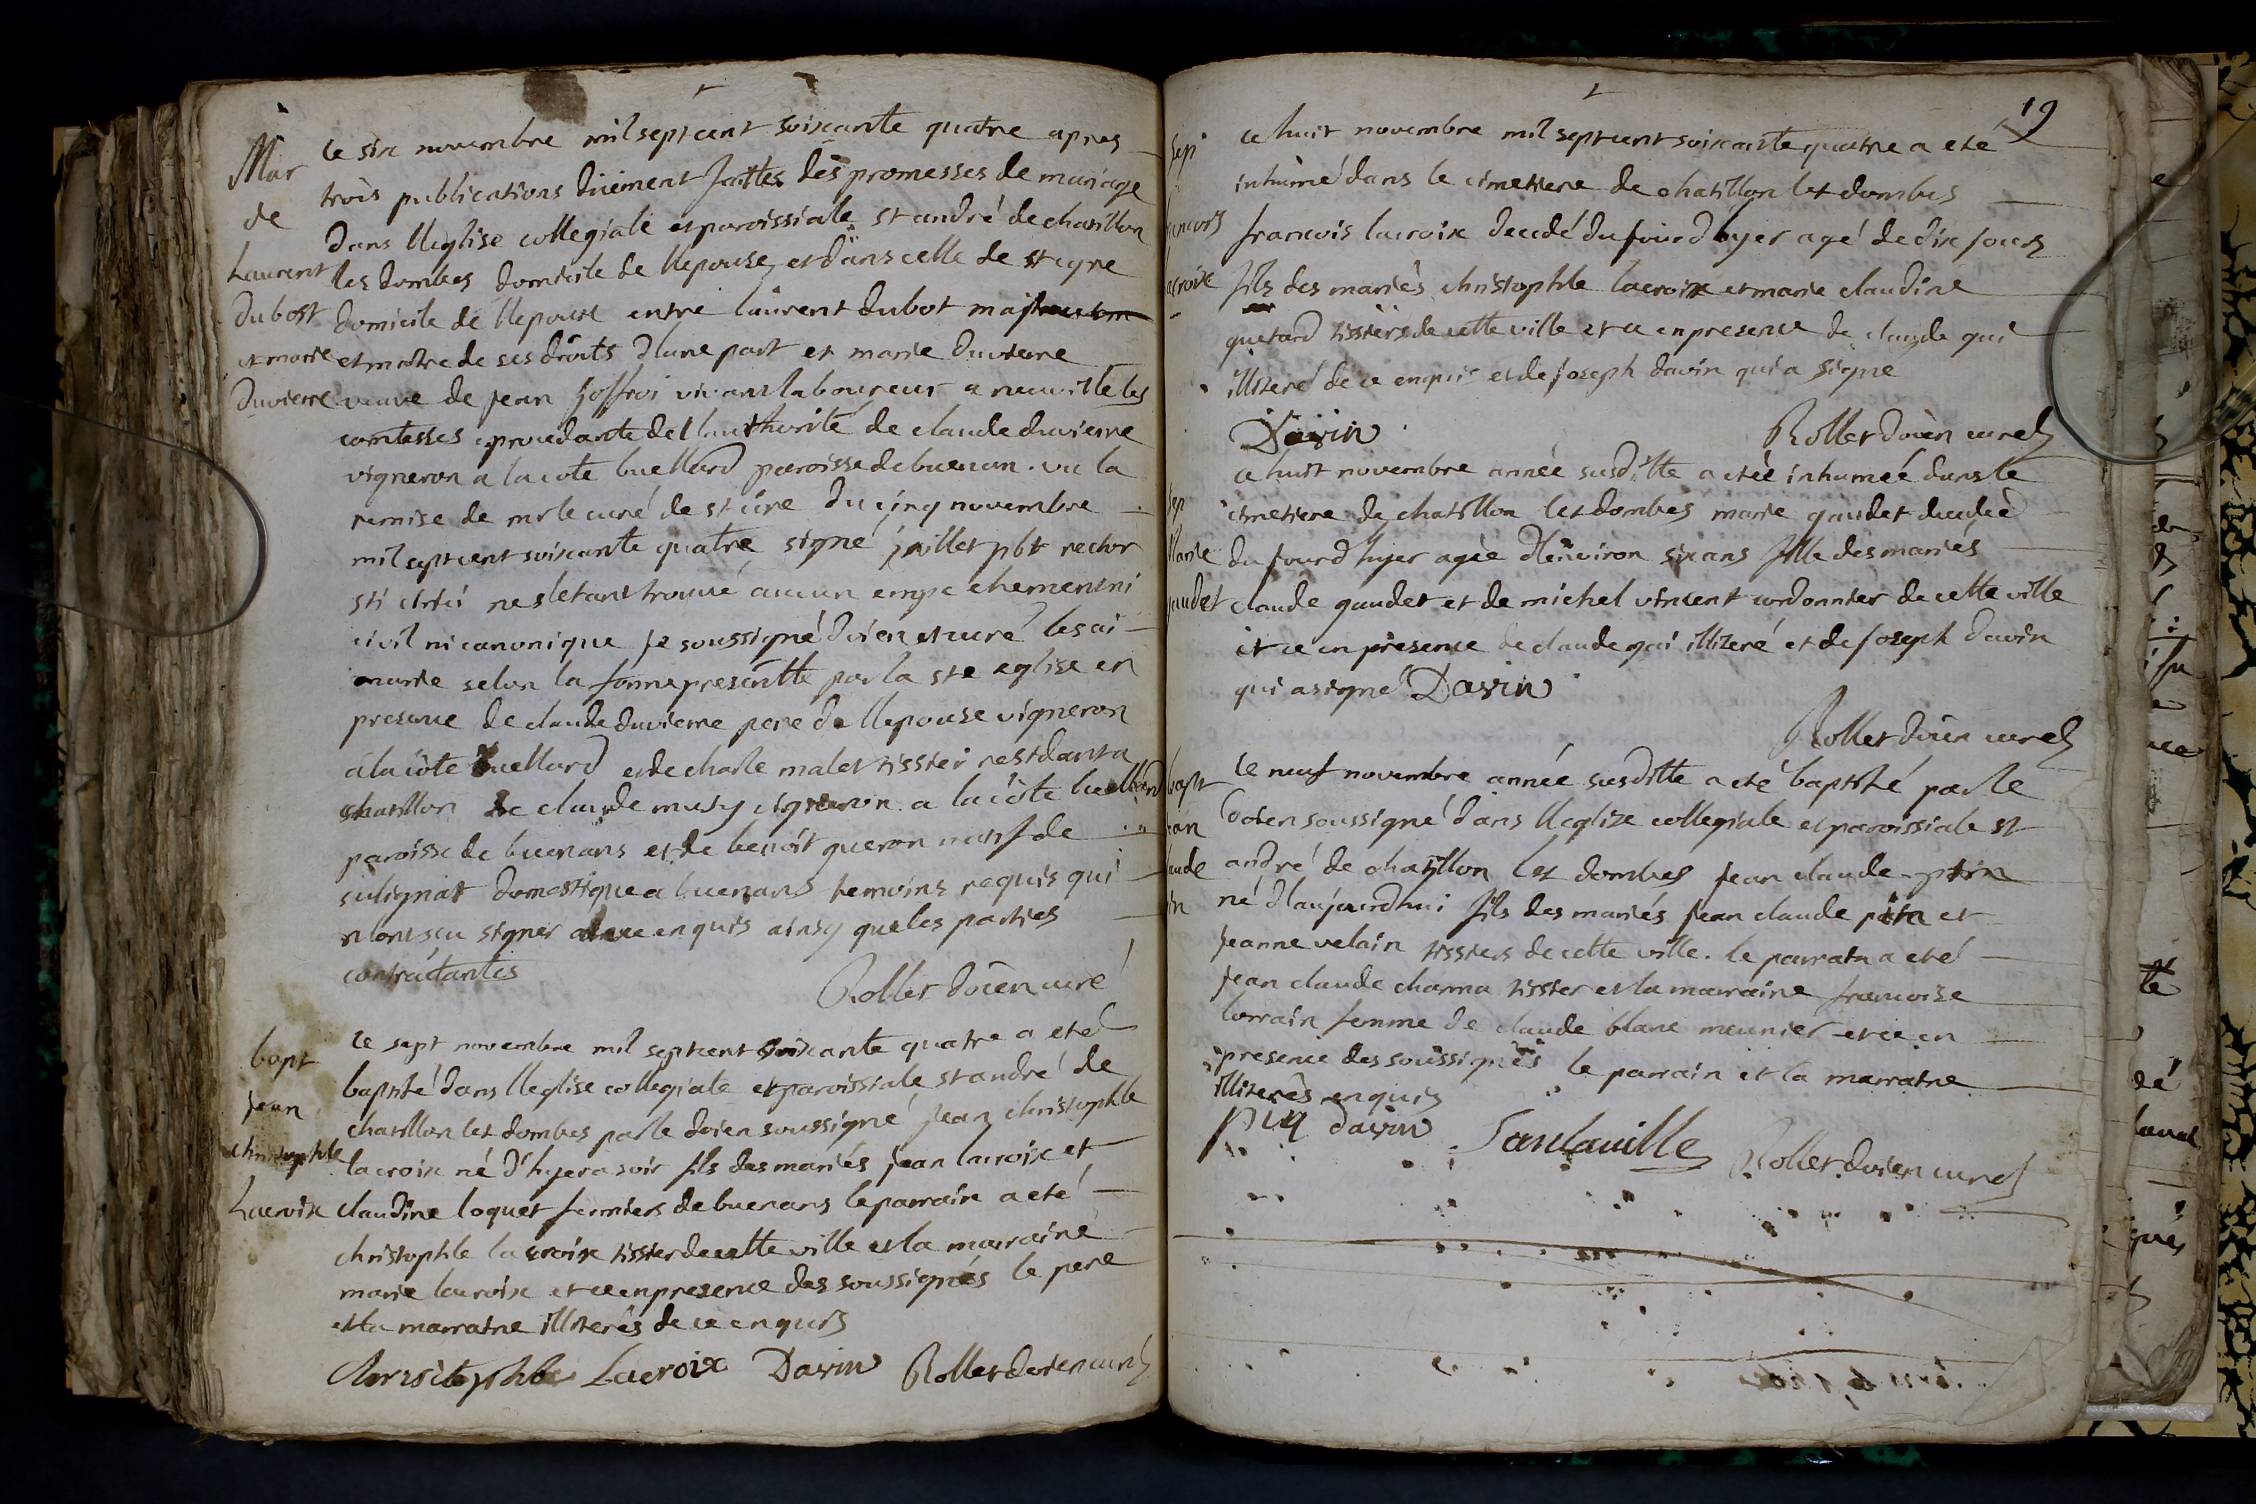 Mar
de
Laurent
dubost
et marie
duvierre
ce six novembre mil sept cent soixante quatre apres
trois publications düement faittes des promesses de mariage
dans l'leglise collegiale et paroissiale st andré de chatillon
les dombes domicile de l'lepouse et dans celle de st cyre
domicile de l'lepoux entre laurent dubot majeur
et maitre de ses droits d'lune part et marie duvierre
veuve de jean joffroi vivant laboureur a neuville les
comtesses procedante de l'lauthorité de claude duvierre
vigneron a la cote buellard paroisse de buenan. vu la
remise de mr le curé de st cire du cinq novembre
mil sept cent soixante quatre signé juillet pbt rector
sti cirici ne s'letant trouvé aucun empechement ni
civil ni canonique je soussigné doien et curé les ai
marié selon la forme prescritte par la ste eglise en
presence de claude duvierre pere de l'lepouse vigneron
a la côte buellard et de charle malet tissier residant a
chatillon de claude musy vigneron a la côte buellard
paroisse de buenans et de benoit queron natif de
sulignat domestique a buenans temoins requis qui
n'ont scu signer de ce enquis ainsy que les parties
contractantes
Rollet doïen curé
bapt
jean
christophle
Lacroix
ce sept novembre mil sept cent soixante quatre a eté
baptisé dans l'leglise collegiale et paroissiale st andré de
chatillon les dombes par le doien soussigné jean christophle
lacroix né d'hyer a soir fils des mariés jean lacroix et
claudine loquet fermiers de buenans le parrain a eté
christophle lacroix tissier de cette ville et la marraine
marie lacroix et ce en presence des soussignés le pere
et la marraine illiterês de ce enquis
Christophle Lacroix Davin Rollet doien curé
19
sep
francois
lacroix
ce huit novembre mil sept cent soixante quatre a eté
inhumé dans le cimetiere de chatillon les dombes
francois lacroix decedé du jourd hyer agé de dix jours
fils des mariès christophle lacroix et marie claudine
quetard tissiers de cette ville et ce en presence de claude gai
illiteré de ce enquis et de joseph davin qui a signe
Davin
Rollet doïen curé
sep
Marie
gaudet
ce huit novembre année susditte a eteé inhumeé dans le
cimetiere de chatillon les dombes marie gaudet decedeé
du jourd hyer ageé d'lenviron six ans fille des mariés
claude gaudet et de michel vincent cordonnier de cette ville
et ce en presence de claude gai illiteré et de joseph davin
qui a signé Davin
Rollet doïen curé
bapt
jean
claude
pitin
ce neuf novembre année susditte a eté baptisé par le
doien soussigné dans l'leglize collegiale et paroissiale st
andré de chatillon les dombes jean claude pitin
né d'laujourdhui fils des mariés jean claude pitin et
jeanne velain tissiers de cette ville. le parrain a eté
jean claude charma tissier et la marraine francoise
lorrain femme de claude blanc meunier et ce en
presence des soussignés le parrain et la marraine
illiterês enquis
davin Sanlaville Rollet doien curé